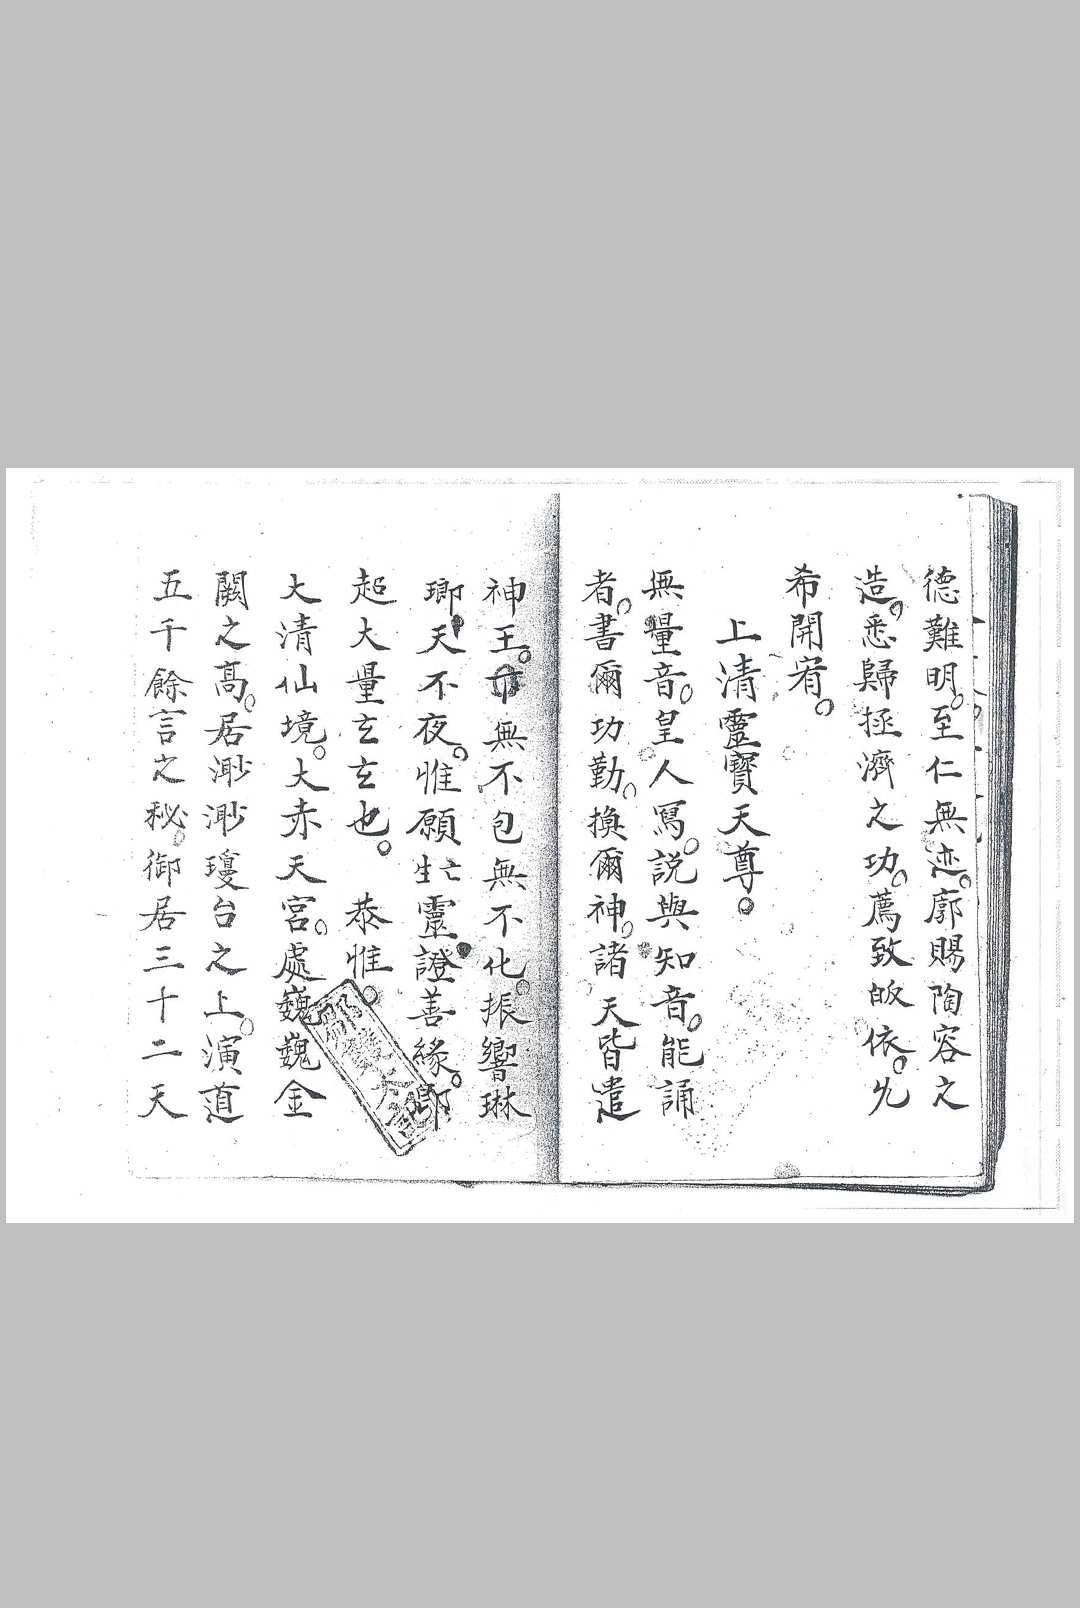 德難明。至仁無迹。廓賜陶容之
造。悉歸拯濟之功。薦致皈依。允
希開宥。
上清靈寶天尊。
無量音。皇人寫。説與知音。能誦
者。書爾功勤。換爾神。諸天皆遣
神王。無不包無不化。振響琳
瑯。天不夜。惟願亡靈證善緣。
超大量玄玄也。 恭惟。
大清仙境。大赤天宮。處巍巍金
闕之高。居渺渺瓊台之上。演道
五千餘言之秘。御居三十二天